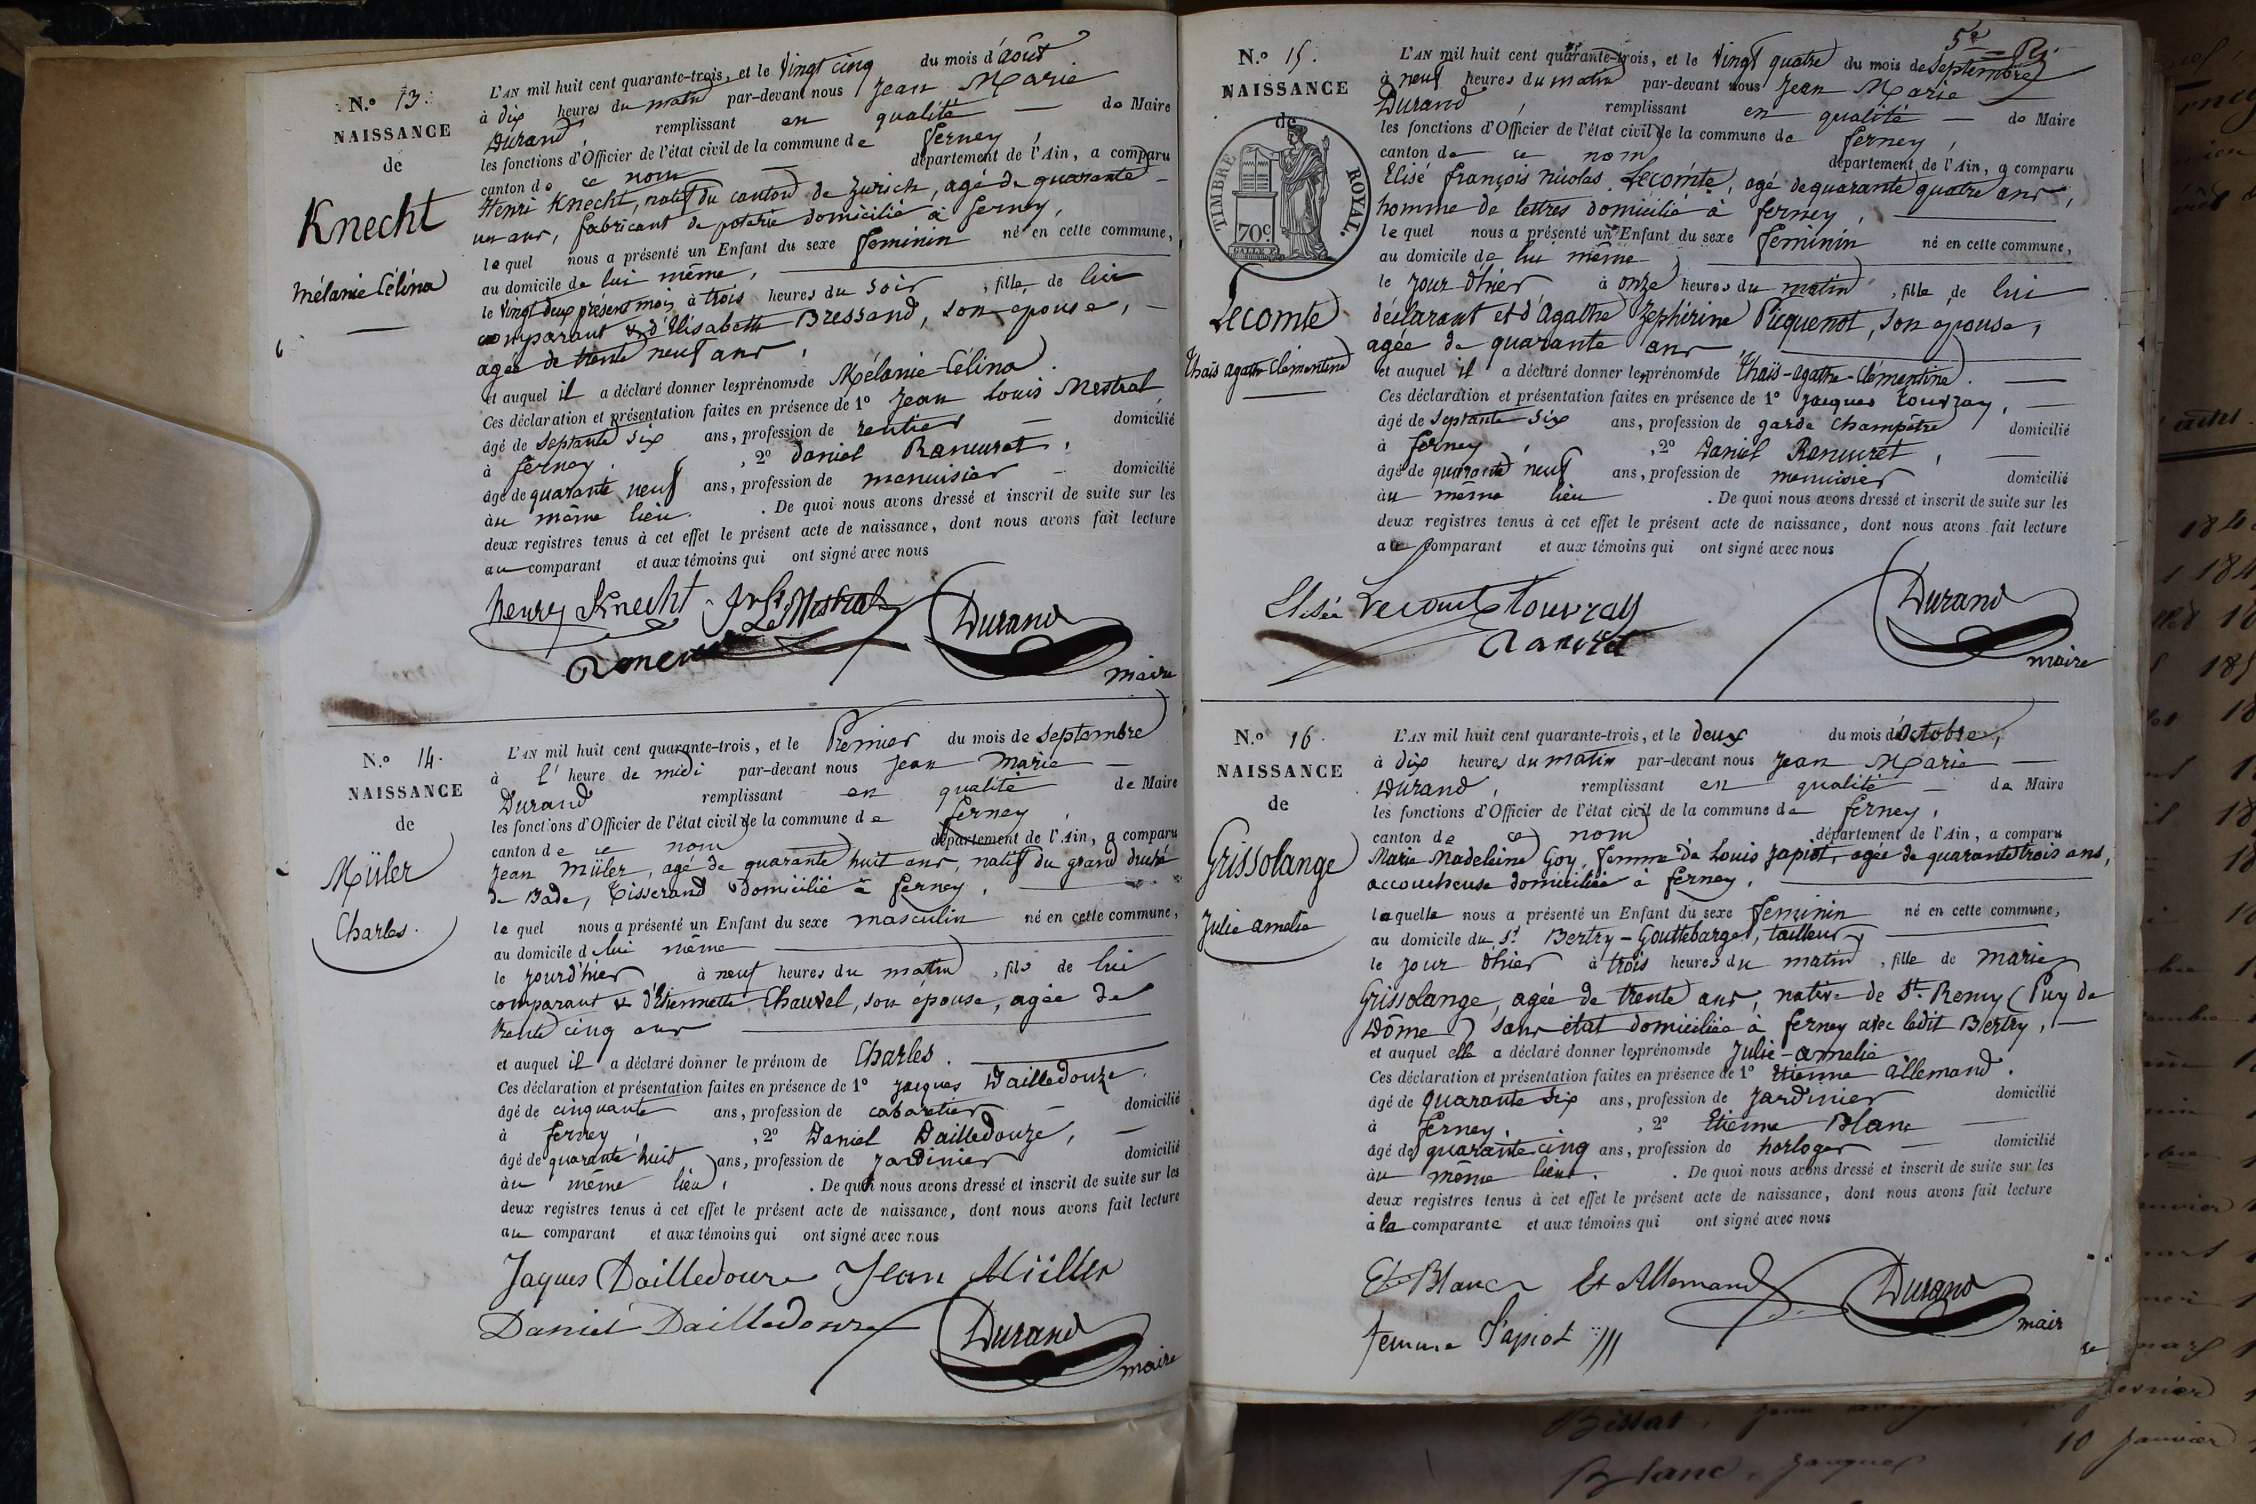 N.o 13.
NAISSANCE
de
Knecht
Mélanie Célina
L'AN mil huit cent quarante-trois, et le Vingt cinq du mois d'août
à dix heures du matin par-devant nous Jean Marie
Durand remplissant en qualité de Maire
les fonctions d'Officier de l'état civil de la commune de ferney,
canton de ce nom département de l'Ain, a comparu
Henri Knecht, natif du canton de Zurich, agé de quarante
un ans, fabricant de poterie domicilié à ferney,
lequel nous a présenté un Enfant du sexe feminin né en cette commune,
au domicile de lui même,
le vingt deux présent mois à trois heures du soir, fille de lui
comparant & d'Elisabeth Bressand, son epouse,
agée de trente neuf ans,
et auquel il a déclaré donner les prénoms de Mélanie-Célina.
Ces déclaration et présentation faites en présence de 1o Jean Louis Mestral
âgé de septante six ans, profession de rentier domicilié
à ferney, 2o Daniel Ranvuret,
âgé de quarante neuf ans, profession de menuisier domicilié
au même lieu. De quoi nous avons dressé et inscrit de suite sur les
deux registres tenus à cet effet le présent acte de naissance, dont nous avons fait lecture
au comparant et aux témoins qui ont signé avec nous
henry Knecht Mestral Durand
maire
N.o 14.
NAISSANCE
de
Müler
Charles.
L'AN mil huit cent quarante-trois, et le Premier du mois de septembre
à l'heure de midi par-devant nous Jean Marie
Durand remplissant en qualité de Maire
les fonctions d'Officier de l'état civil de la commune de ferney,
canton de ce nom département de l'Ain, a comparu
Jean Müler, agé de quarante huit ans, natif du grand duché
de Bade, Tisserand domicilié à ferney,
lequel nous a présenté un Enfant du sexe masculin né en cette commune,
au domicile d lui même
le jour d'hier à neuf heures du matin, fils de lui
comparant & d'Etiennette Chauvel, son épouse, agée de
trente cinq ans
et auquel il a déclaré donner le prénom de Charles.
Ces déclaration et présentation faites en présence de 1o Jacques Dailledouze.
âgé de cinquante ans, profession de cabaretier domicilié
à ferney, 2o Daniel Dailledouze,
âgé de quarante huit ans, profession de jardinier domicilié
au même lieu, . De quoi nous avons dressé et inscrit de suite sur les
deux registres tenus à cet effet le présent acte de naissance, dont nous avons fait lecture
au comparant et aux témoins qui ont signé avec nous
Jaques Dailledouze Jean Müller
Daniel Dailledouze Durand
maire
5e
N.o 15.
NAISSANCE
de
TIMBRE ROYAL.
70c
Lecomte
Thaïs agathe Clémentine
L'AN mil huit cent quarante-trois, et le Vingt quatre du mois de septembre
à neuf heures du matin par-devant nous Jean Marie
Durand, remplissant en qualité de Maire
les fonctions d'Officier de l'état civil de la commune de ferney,
canton de ce nom département de l'Ain, a comparu
Elisé françois Nicolas Lecomte, agé de quarante quatre ans,
homme de lettres domicilié à ferney,
lequel nous a présenté un Enfant du sexe feminin né en cette commune,
au domicile de lui même
le jour d'hier à onze heures du matin, fille de lui
déclarant et d'Agathe Zephirine Picquenot, son epouse,
agée de quarante ans,
et auquel il a déclaré donner les prénoms de Thaïs-agathe-Clémentine.
Ces déclaration et présentation faites en présence de 1o Jacques Touvray,
âgé de septante six ans, profession de garde champêtre domicilié
à ferney, 2o Daniel Ranvuret,
âgé de quarante neuf ans, profession de menuisier domicilié
au même lieu . De quoi nous avons dressé et inscrit de suite sur les
deux registres tenus à cet effet le présent acte de naissance, dont nous avons fait lecture
au comparant et aux témoins qui ont signé avec nous
Elisée Lecomte Touvray Durand
maire
N.o 16.
NAISSANCE
de
Grissolange
Julie amelie
L'AN mil huit cent quarante-trois, et le deux du mois d'Octobre,
à dix heures du matin par-devant nous Jean Marie
Durand, remplissant en qualité de Maire
les fonctions d'Officier de l'état civil de la commune de ferney,
canton de ce nom département de l'Ain, a comparu
Marie Madeleine Goy, femme de Louis Japiot, agée de quarante trois ans,
accoucheuse domiciliée à ferney,
laquelle nous a présenté un Enfant du sexe feminin né en cette commune,
au domicile du Sr Bertry-Gouttebarge, tailleur
le jour d'hier à trois heures du matin, fille de marie
Grissolange, agée de trente ans, native de St. Remy (Puy de
Dôme) sans état domiciliée à ferney avec ledit Bertry,
et auquel elle a déclaré donner les prénoms de Julie-amelie
Ces déclaration et présentation faites en présence de 1o Etienne allemand.
âgé de quarante six ans, profession de jardinier domicilié
à ferney, 2o Etienne Blanc
âgé de quarante cinq ans, profession de horloger domicilié
au même lieu. De quoi nous avons dressé et inscrit de suite sur les
deux registres tenus à cet effet le présent acte de naissance, dont nous avons fait lecture
à la comparante et aux témoins qui ont signé avec nous
Et Blanc Et Allemand Durand
femme Japiot maire
Blanc, Jacques
10 janvier